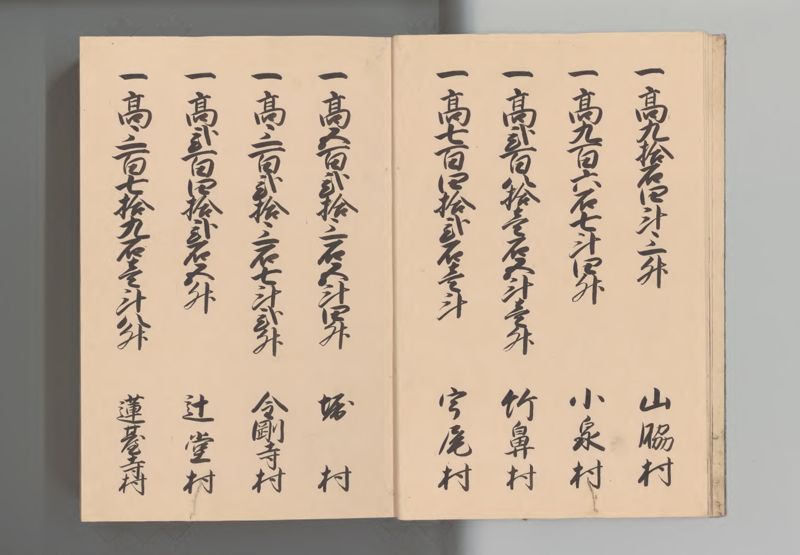 一高九拾石四斗三升 山脇村
一高九百六石七斗四升 小泉村
一高弐百八拾壱石五斗壱升 竹鼻村
一高七百四拾弐石壱斗 宇尾村
一高五百弐拾三石五斗四升 堀村
一高三百弐拾三石七斗弐升 金剛寺村
一高弐百四拾弐石五升 辻堂村
一高三百七拾九石壱斗八升 蓮臺寺村